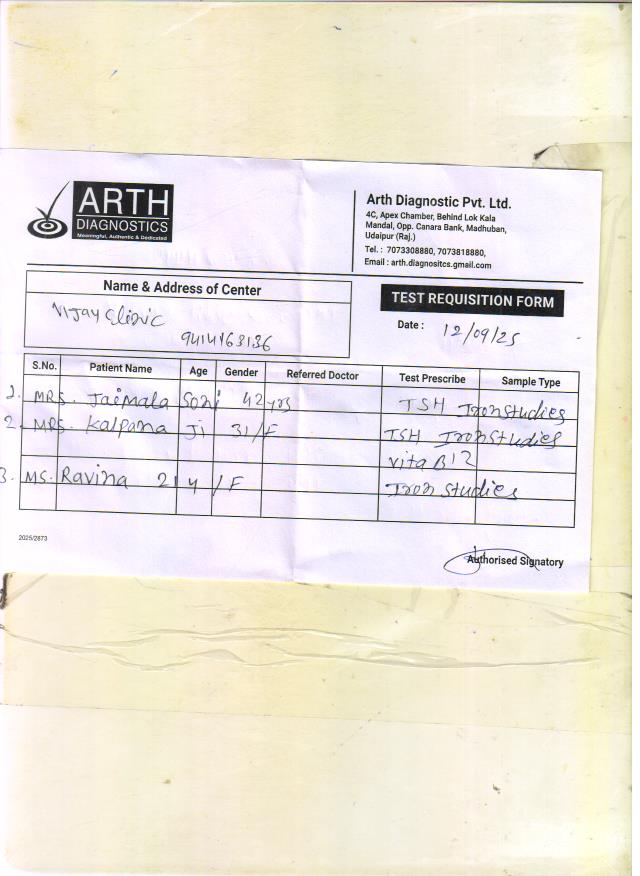 ARTH
DIAGNOSTICS
Meaningful, Authentic & Dedicated
Arth Diagnostic Pvt. Ltd.
4C, Apex Chamber, Behind Lok Kala
Mandal, Opp. Canara Bank, Madhuban,
Udaipur (Raj.)
Tel. : 7073308880, 7073818880,
Email : arth.diagnositcs.gmail.com
Name & Address of Center
Vijay Clinic
9414163136
TEST REQUISITION FORM
Date : 12/09/25
S.No. Patient Name Age Gender Referred Doctor Test Prescribe Sample Type
1. MRS. Jaimala Soni 42 yrs TSH Iron Studies
2. MRS. Kalpana Ji 31/F TSH Iron Studies
Vita B12
3. MS. Ravina 21 y /F Iron Studies
2025/2873
Authorised Signatory